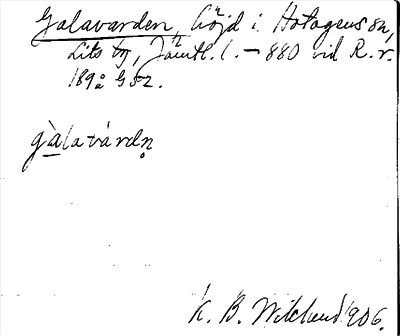 Galavarden, höjd i Hotagens sn,
Lits tg, Jämtl. l. — 880 vid R. r.
189a G 52.
gàlavárdn̥
K. B. Wiklund 1906.